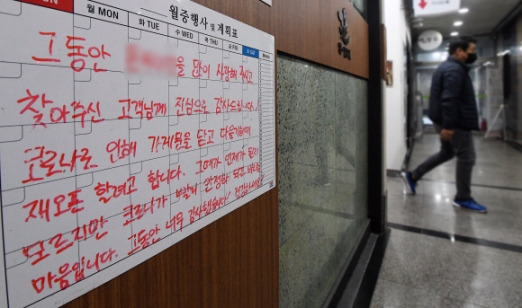 월중행사 및 계획표
MON TUE WED THU FRI
그동안 을 많이 사랑해 주시고
찾아주신 고객님께 진심으로 감사드립니다.
코로나로 인해 가게문을 닫고 다음기회에
재오픈 할려고 합니다. 그때가 언제가 될지
모르지만 코로나가 빨리 안정화 되길 바라는
마음입니다. 그동안 너무 감사했습니다! 건강하세요